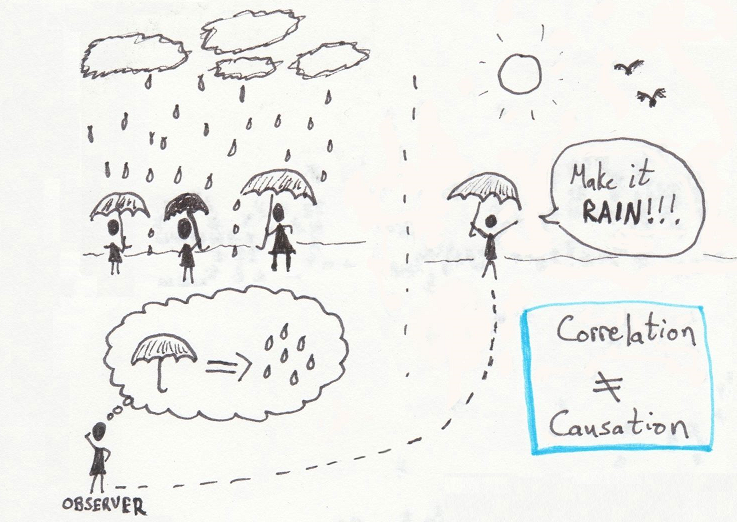 Make it
RAIN!!!
OBSERVER
Correlation
≠
Causation